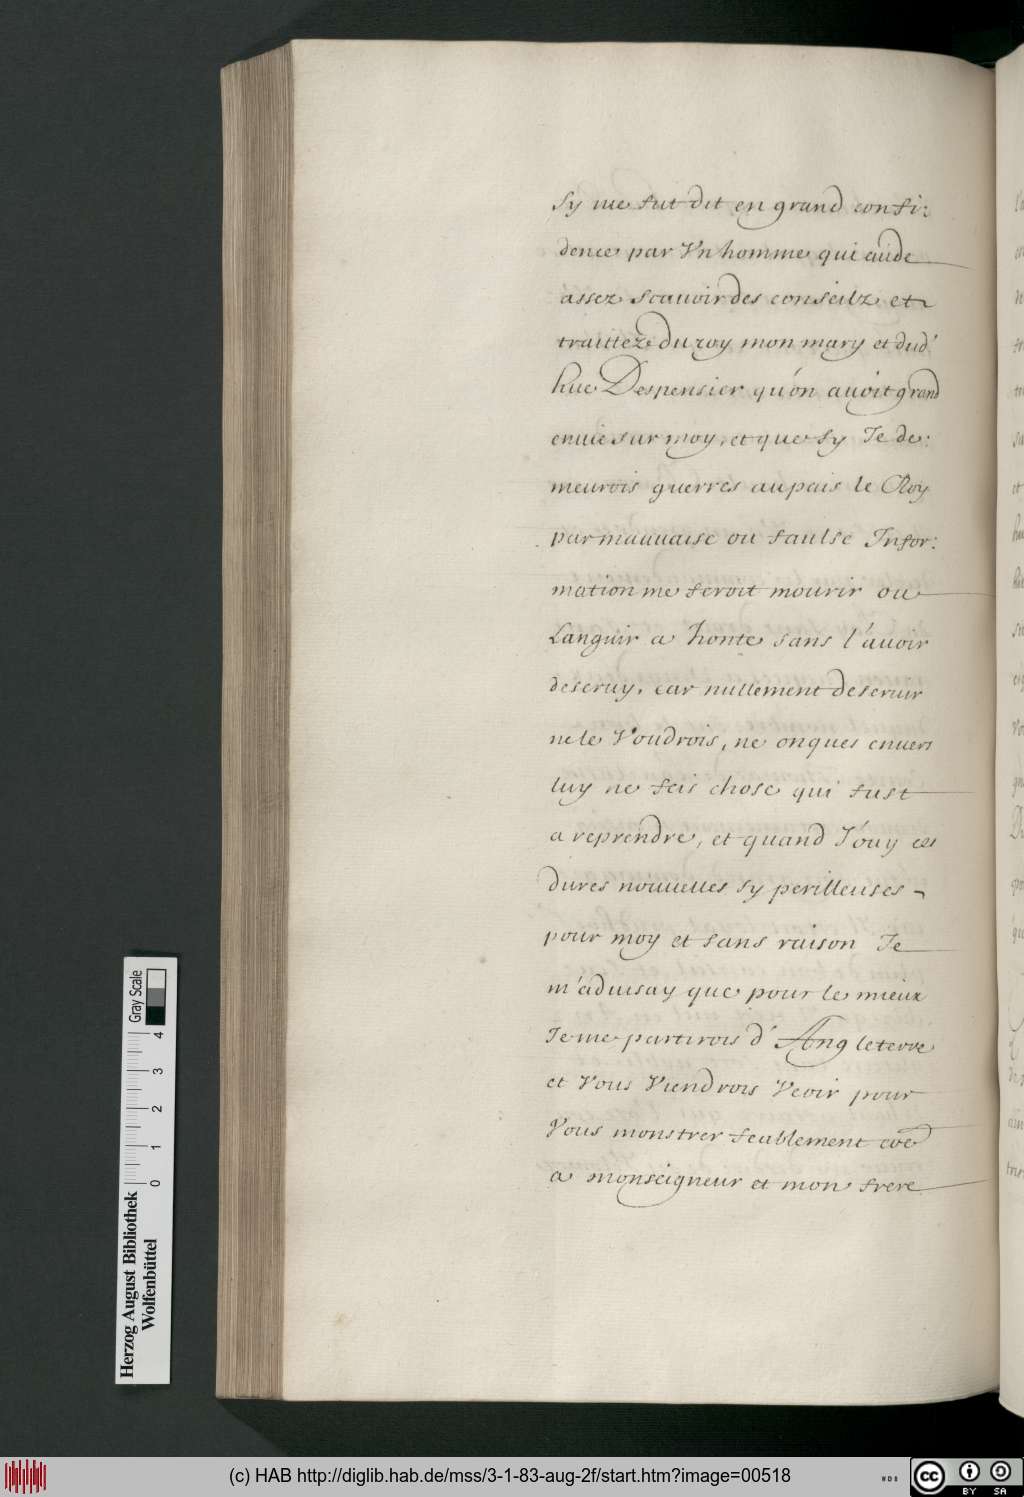 Sy me fut dit en grand confi:
dence par Vn homme qui cuide
assez scauoir des conseilz et
traittez du roy mon mary et dud'
hue Despensier qu'on auoit grand
enuie sur moy, et que sy Je de:
meurois guerres au pais le Roy
par mauuaise ou faulse Infor:
mation me feroit mourir ou
Languir a honte sans l'auoir
deseruy, car nullement deseruir
ne le Voudrois, ne onques enuers
luy ne feis chose qui fust
a reprendre, et quand J'ouy ces
dures nouuelles sy perilleuses
pour moy et sans raison Je
m'aduisay que pour le mieux
Je me partirois d'Angleterre
et Vous Viendrois Veoir pour
Vous monstrer feablement coe
a monseigneur et mon frere
Herzog August Bibliothek
Wolfenbüttel
0 1 2 3 4
Gray Scale
(c) HAB http://diglib.hab.de/mss/3-1-83-aug-2f/start.htm?image=00518
WDB
cc BY SA